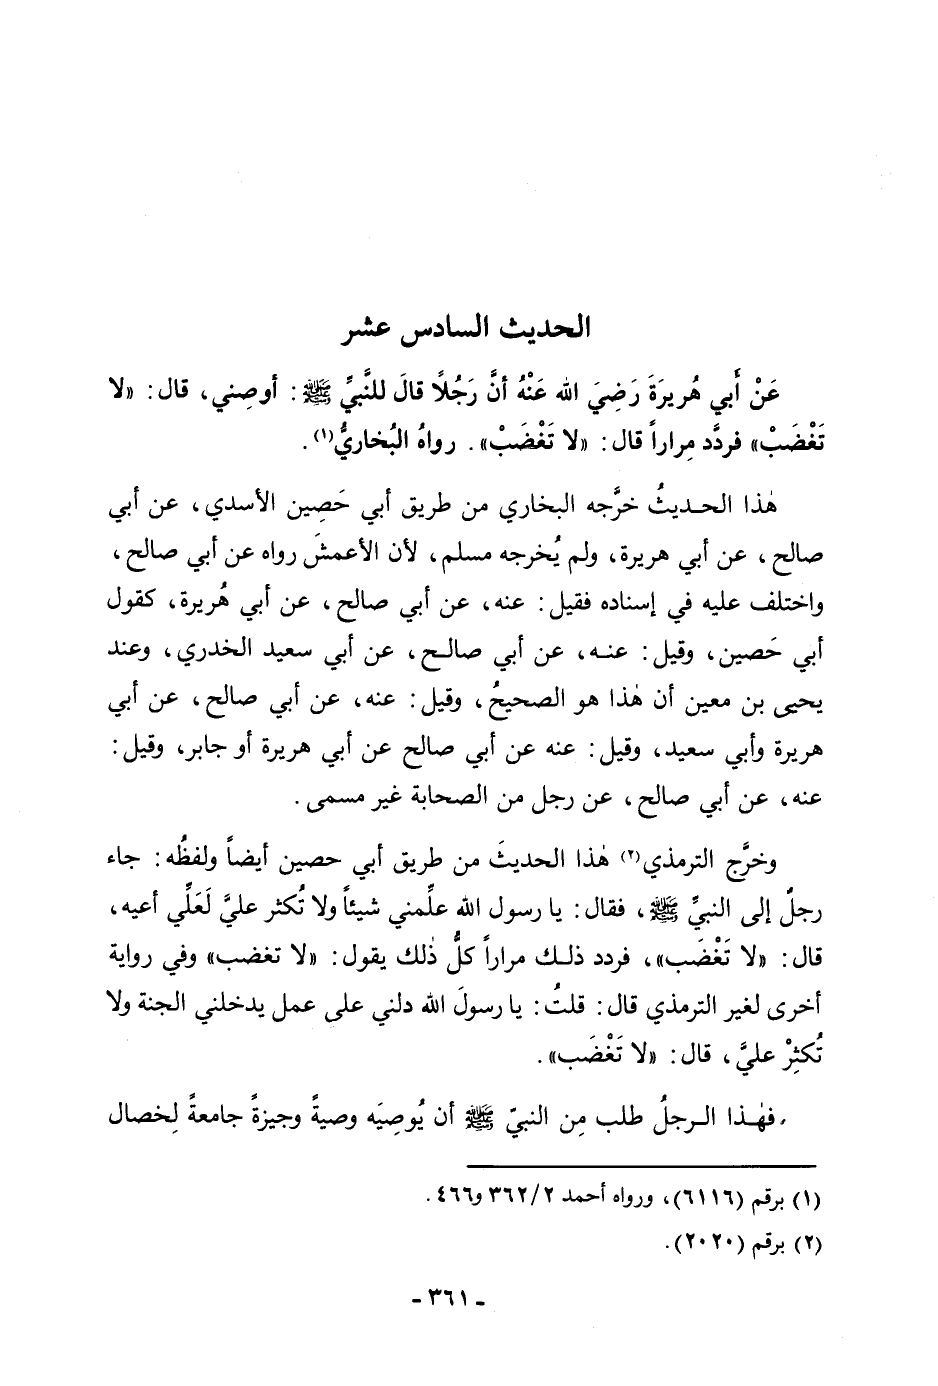 الحديث السادس عشر
عَنْ أَبي هُريرَةَ رَضِيَ الله عَنْهُ أنَّ رَجُلًا قالَ للنَّبيِّ ﷺ: أوصِني، قال: «لا
تَغْضَبْ» فردَّد مِراراً قال: «لا تَغْضَبْ». رواهُ البُخاريُّ(١).
هٰذا الحديثُ خرَّجه البخاري من طريق أبي حَصِين الأسدي، عن أبي
صالح، عن أبي هريرة، ولم يُخرجه مسلم، لأن الأعمشَ رواه عن أبي صالح،
واختلف عليه في إسناده فقيل: عنه، عن أبي صالح، عن أبي هُريرة، كقول
أبي حَصين، وقيل: عنه، عن أبي صالح، عن أبي سعيد الخدري، وعند
يحيى بن معين أن هٰذا هو الصحيحُ، وقيل: عنه، عن أبي صالح، عن أبي
هريرة وأبي سعيد، وقيل: عنه عن أبي صالح عن أبي هريرة أو جابر، وقيل:
عنه، عن أبي صالح، عن رجل من الصحابة غير مسمى.
وخرَّج الترمذي(٢) هٰذا الحديثَ من طريق أبي حصين أيضاً ولفظُه: جاء
رجلٌ إلى النبيِّ ﷺ، فقال: يا رسول الله علِّمني شيئاً ولا تُكثر عليَّ لَعَلِّي أعيه،
قال: «لا تَغْضَب»، فردد ذلك مراراً كلُّ ذٰلك يقول: «لا تغضب» وفي رواية
أخرى لغير الترمذي قال: قلتُ: يا رسولَ الله دلني على عمل يدخلني الجنة ولا
تُكثِرْ عليَّ، قال: «لا تَغْضَب».
فهٰذا الرجلُ طلب مِن النبيّ ﷺ أن يُوصِيَه وصيةً وجيزةً جامعةً لِخصال
(١) برقم (٦١١٦)، ورواه أحمد ٣٦٢/٢ و٤٦٦.
(٢) برقم (٢٠٢٠).
- ٣٦١ -